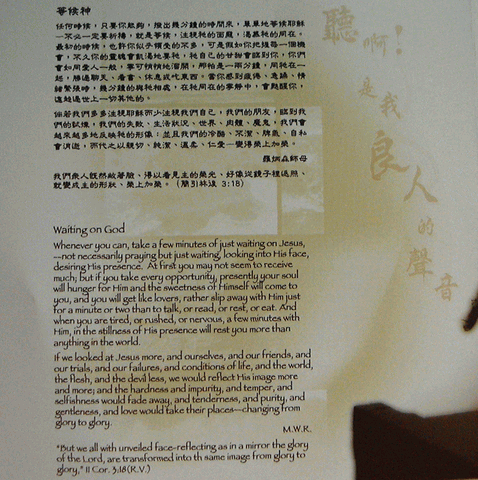 等候神
任何時候，只要你能夠，撥出幾分鐘的時間來，單單地等候耶穌
—不必一定要祈禱，就是等候，注視祂的面龐，渴慕祂的同在。
最初的時候，也許你似乎領受的不多，可是假如你把握每一個機
會，不久你的靈魂會飢渴地要祂，祂自己的甘甜會臨到你，你們
會如同愛人一般，寧可悄悄地溜開，即怕是一兩分鐘，同祂在一
起，勝過聊天、看書、休息或吃東西。當你感到疲倦、急躁、情
緒緊張時，幾分鐘的與祂相處，在祂同在的寧靜中，會甦醒你，
遠超過世上一切其他的。
倘若我們多多注視耶穌而少注視我們自己，我們的朋友，臨到我
們的試煉，我們的失敗、生活狀況、世界、肉體、魔鬼，我們會
越來越多地反映祂的形像；並且我們的冷酷、不潔、脾氣、自私
會消逝，而代之以親切、純潔、溫柔、仁愛—變得榮上加榮。
羅炳森師母
我們眾人既然敞著臉，得以看見主的榮光，好像從鏡子裡返照，
就變成主的形狀，榮上加榮。（簡引林後 3:18）
聽啊！
是我
良人
的聲音
Waiting on God
Whenever you can, take a few minutes of just waiting on Jesus,
--not necessarily praying but just waiting, looking into His face,
desiring His presence. At first you may not seem to receive
much; but if you take every opportunity, presently your soul
will hunger for Him and the sweetness of Himself will come to
you, and you will get like lovers, rather slip away with Him just
for a minute or two than to talk, or read, or rest, or eat. And
when you are tired, or rushed, or nervous, a few minutes with
Him, in the stillness of His presence will rest you more than
anything in the world.
If we looked at Jesus more, and ourselves, and our friends, and
our trials, and our failures, and conditions of life, and the world,
the flesh, and the devil less, we would reflect His image more
and more; and the hardness and impurity, and temper, and
selfishness would fade away, and tenderness, and purity, and
gentleness, and love would take their places—changing from
glory to glory.
M.W.R.
"But we all with unveiled face-reflecting as in a mirror the glory
of the Lord, are transformed into th same image from glory to
glory," II Cor. 3:18(R.V.)